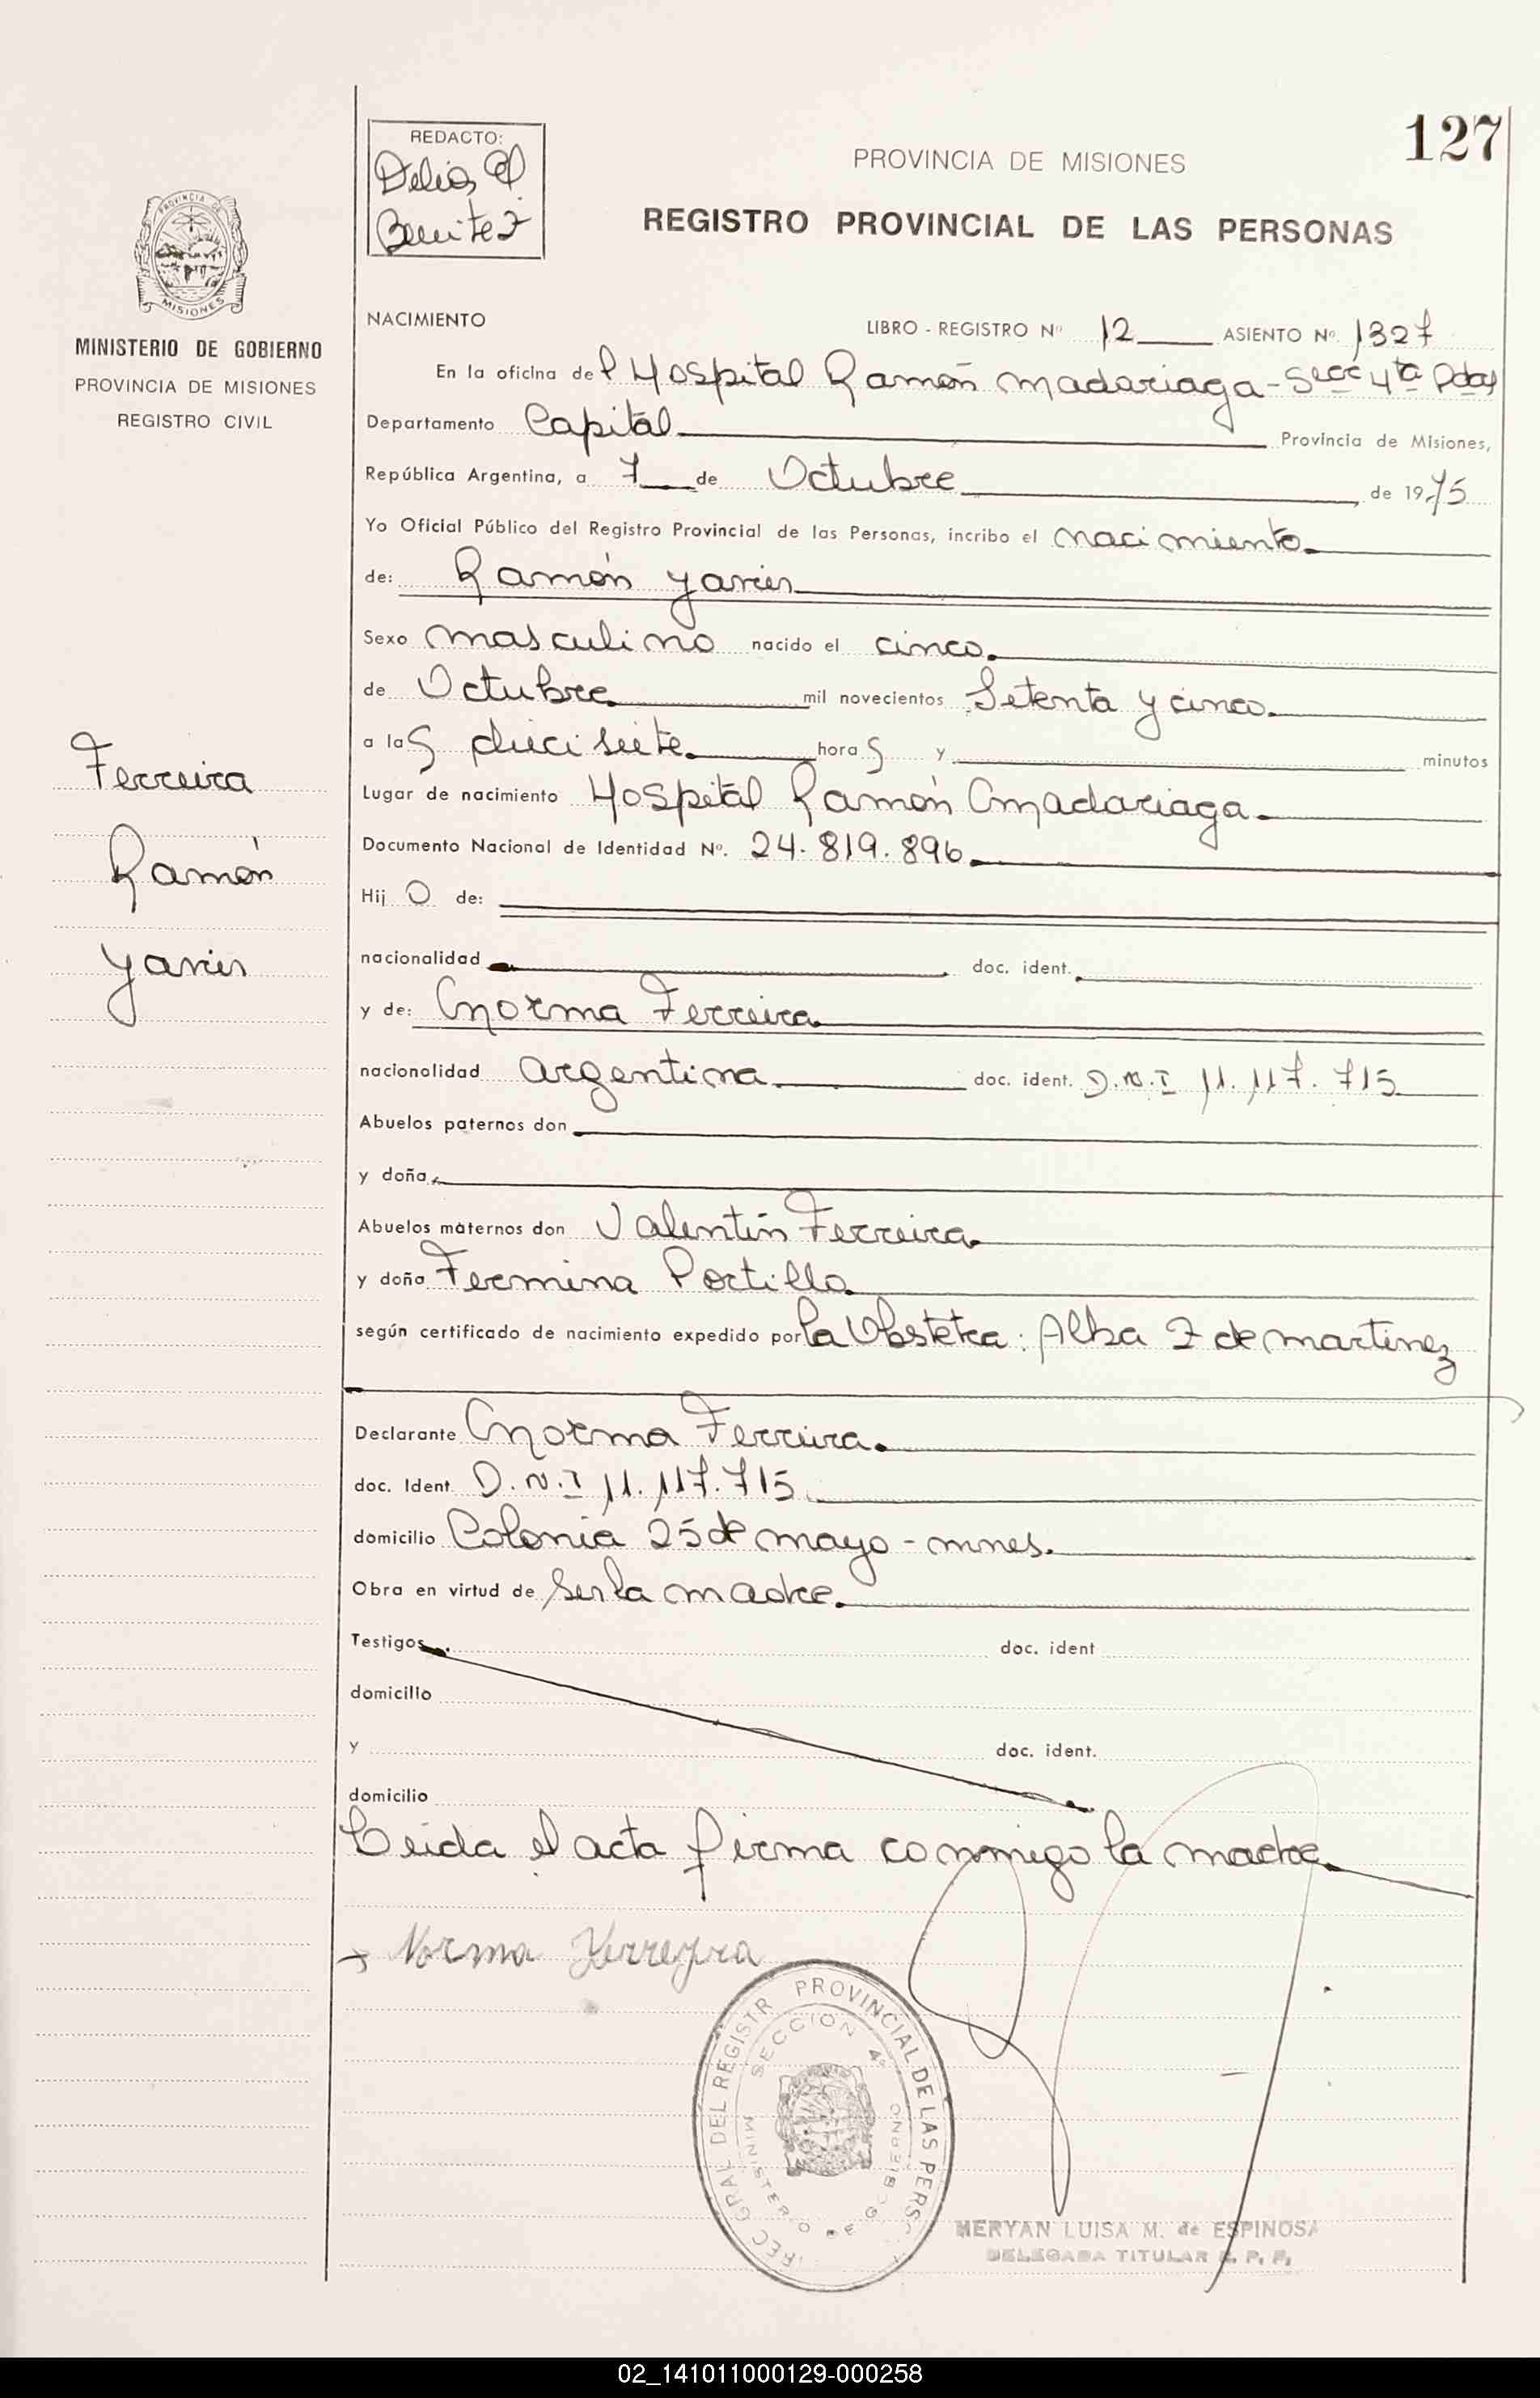 127
REDACTO:
Delia
Benitez
PROVINCIA DE MISIONES
REGISTRO PROVINCIAL DE LAS PERSONAS
PROVINCIA DE
MISIONES
MINISTERIO DE GOBIERNO
PROVINCIA DE MISIONES
REGISTRO CIVIL
NACIMIENTO
LIBRO - REGISTRO Nº 12 ASIENTO Nº 1327
En la oficina del Hospital Ramón Madariaga - Secc 4ta Pdas
Departamento Capital Provincia de Misiones,
República Argentina, a 7 de Octubre de 1975
Yo Oficial Público del Registro Provincial de las Personas, incribo el nacimiento
de: Ramón Yavier
Sexo masculino nacido el cinco
de Octubre mil novecientos Setenta y cinco
a las diecisiete horas y minutos
Ferreira
Ramón
Yavier
Lugar de nacimiento Hospital Ramón Madariaga
Documento Nacional de Identidad Nº. 24.819.896
Hijo de:
nacionalidad doc. ident.
y de: Norma Ferreira
nacionalidad argentina doc. ident. D.N.I 11.117.715
Abuelos paternos don
y doña
Abuelos maternos don Valentín Ferreira
y doña Fermina Portillo
según certificado de nacimiento expedido por la Obstetra: Alba Z de Martinez
Declarante Norma Ferreira
doc. Ident. D.N.I 11.117.715
domicilio Colonia 25 de mayo - mnes.
Obra en virtud de ser la madre.
Testigos doc. ident
domicilio
y doc. ident.
domicilio
Leida el acta firma conmigo la madre
x Norma Ferreyra
DEL REGISTR PROVINCIAL DE LAS PERS
SECCION 4ª
MINISTERIO DE GOBIERNO
MERYAN LUISA M. de ESPINOSA
DELEGADA TITULAR R. P. P.
02_141011000129-000258